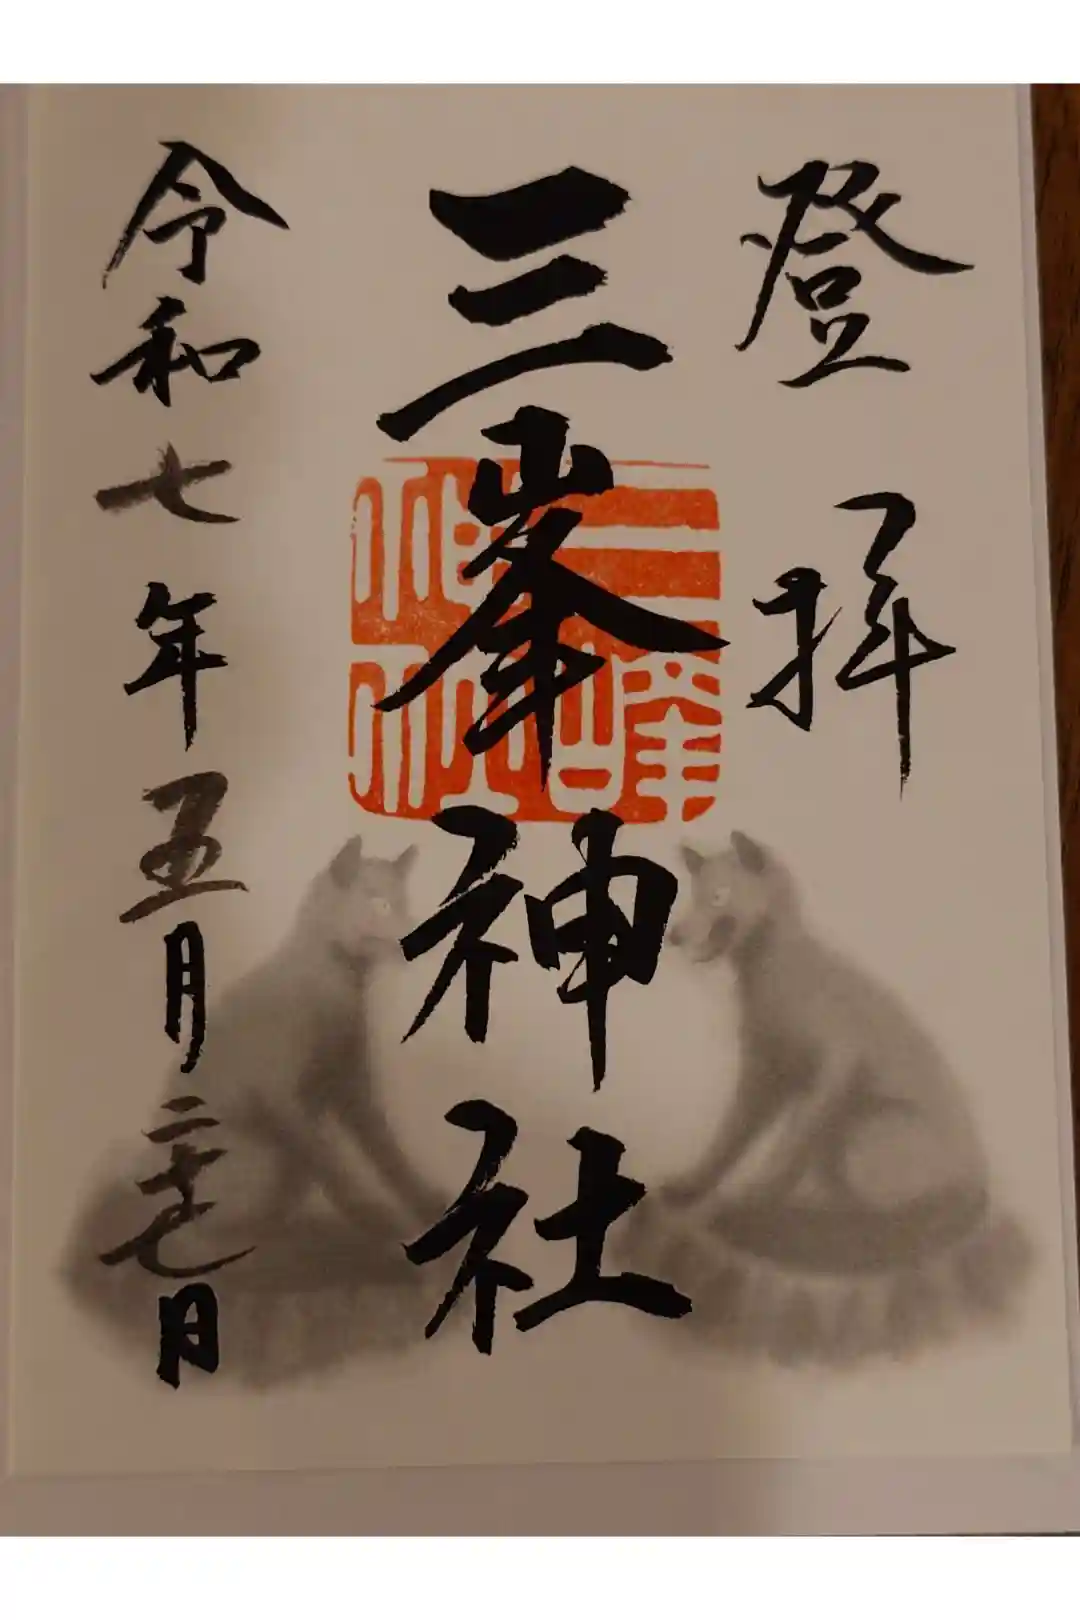 登拝
三峯神社
三峰神社
令和七年五月二十七日